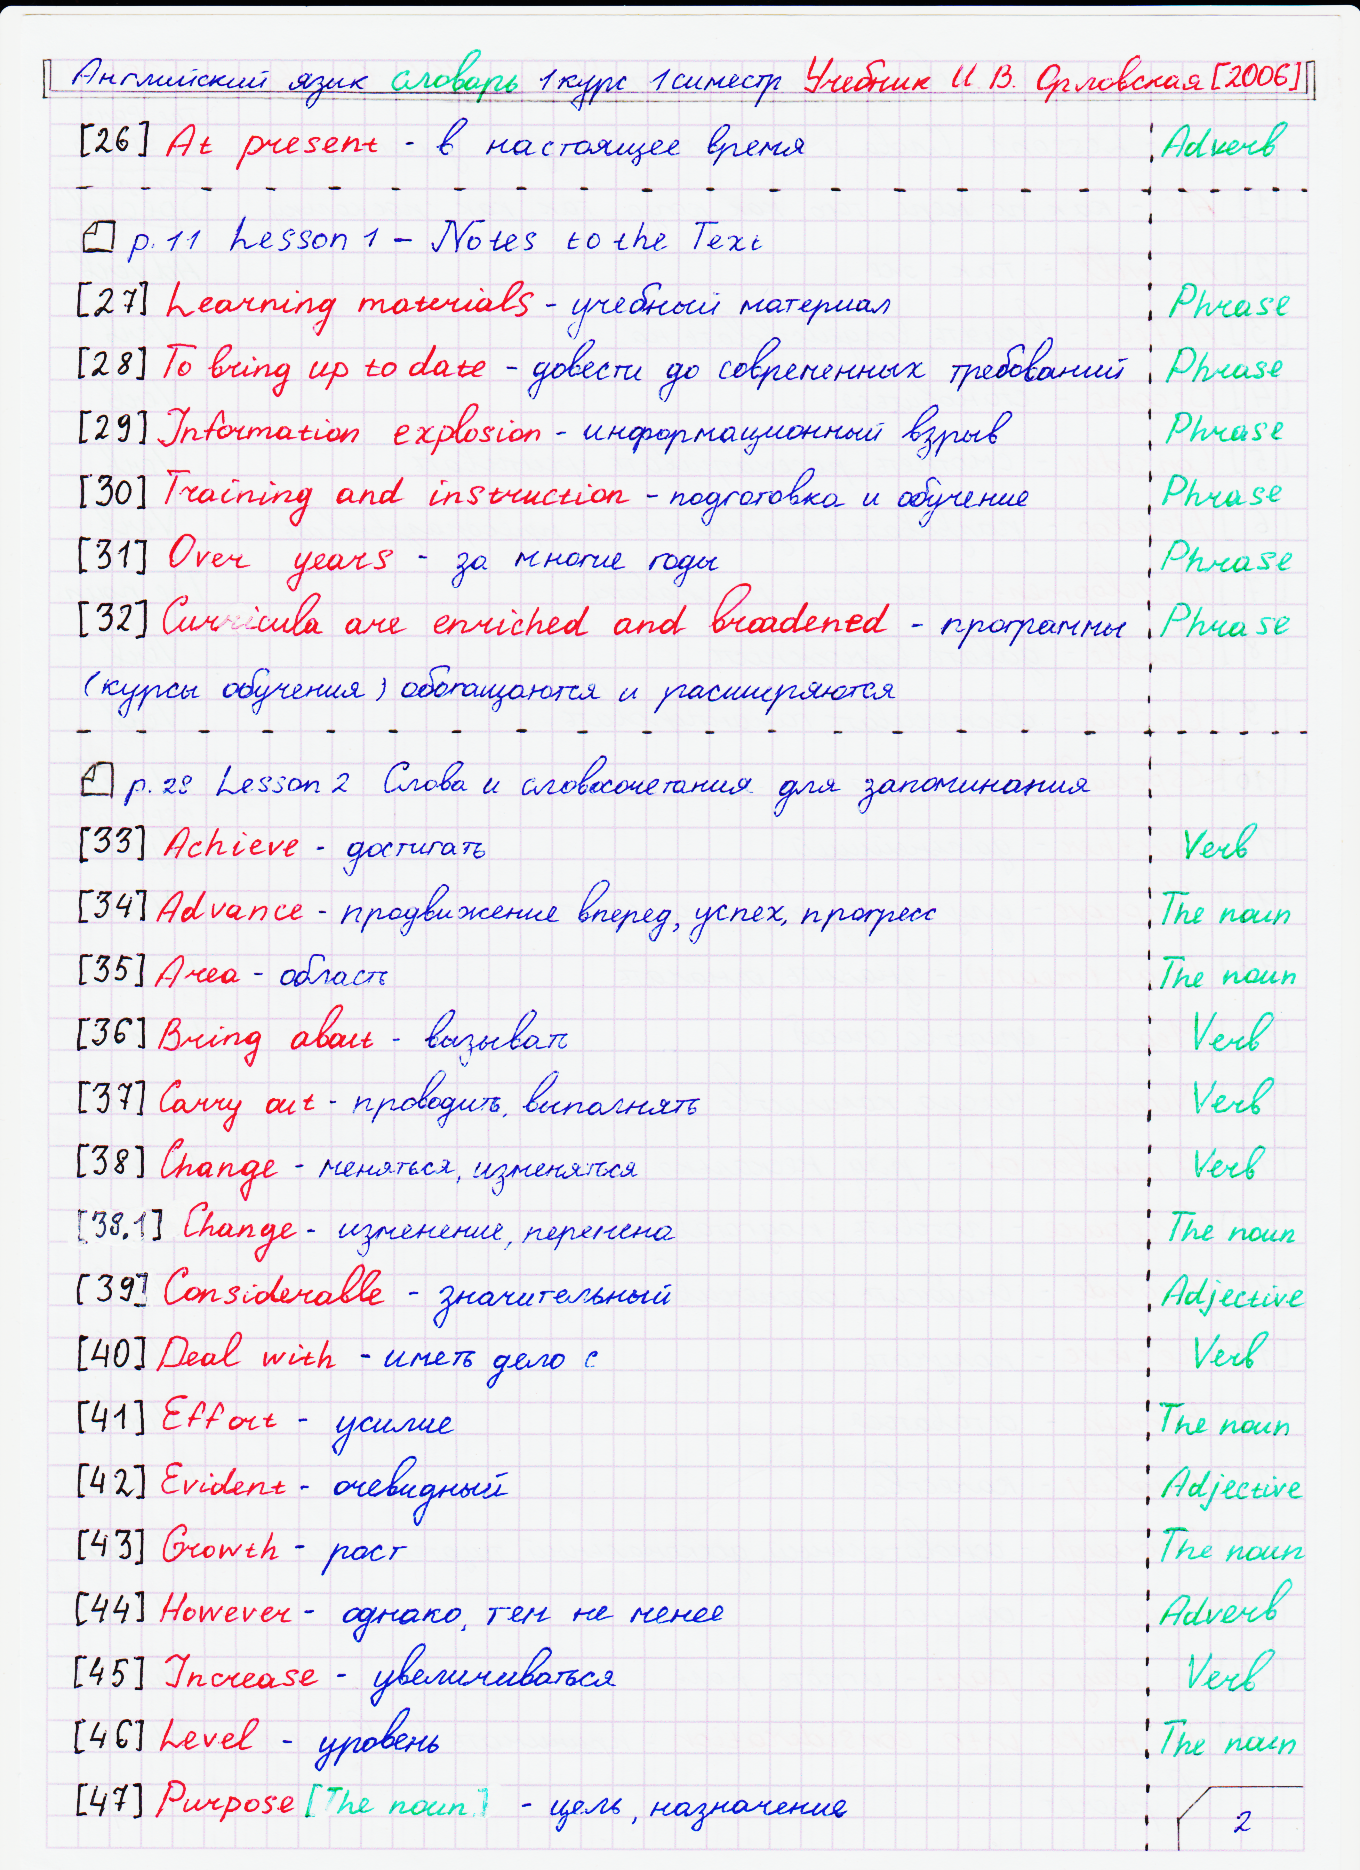 Английский язик словарь 1 курс 1 симестр Учебник И. В. Орловская [2006]
[26] At present - в настоящее время Adverb
p. 11 Lesson 1 – Notes to the Text
[27] Learning materials - учебный материал Phrase
[28] To bring up to date - довести до современных требований Phrase
[29] Information explosion - информационный взрыв Phrase
[30] Training and instruction - подготовка и обучение Phrase
[31] Over years - за многие годы Phrase
[32] Curricula are enriched and broadened - программы Phrase
(курсы обучения) обогащаются и расширяются
p. 28 Lesson 2 Слова и словосочетания для запоминания
[33] Achieve - достигать Verb
[34] Advance - продвижение вперед, успех, прогресс The noun
[35] Area - область The noun
[36] Bring about - вызывать Verb
[37] Carry out - проводить, выполнять Verb
[38] Change - меняться, изменяться Verb
[38.1] Change - изменение, перемена The noun
[39] Considerable - значительный Adjective
[40] Deal with - иметь дело с Verb
[41] Effort - усилие The noun
[42] Evident - очевидный Adjective
[43] Growth - рост The noun
[44] However - однако, тем не менее Adverb
[45] Increase - увеличиваться Verb
[46] Level - уровень The noun
[47] Purpose [The noun] - цель, назначение
2